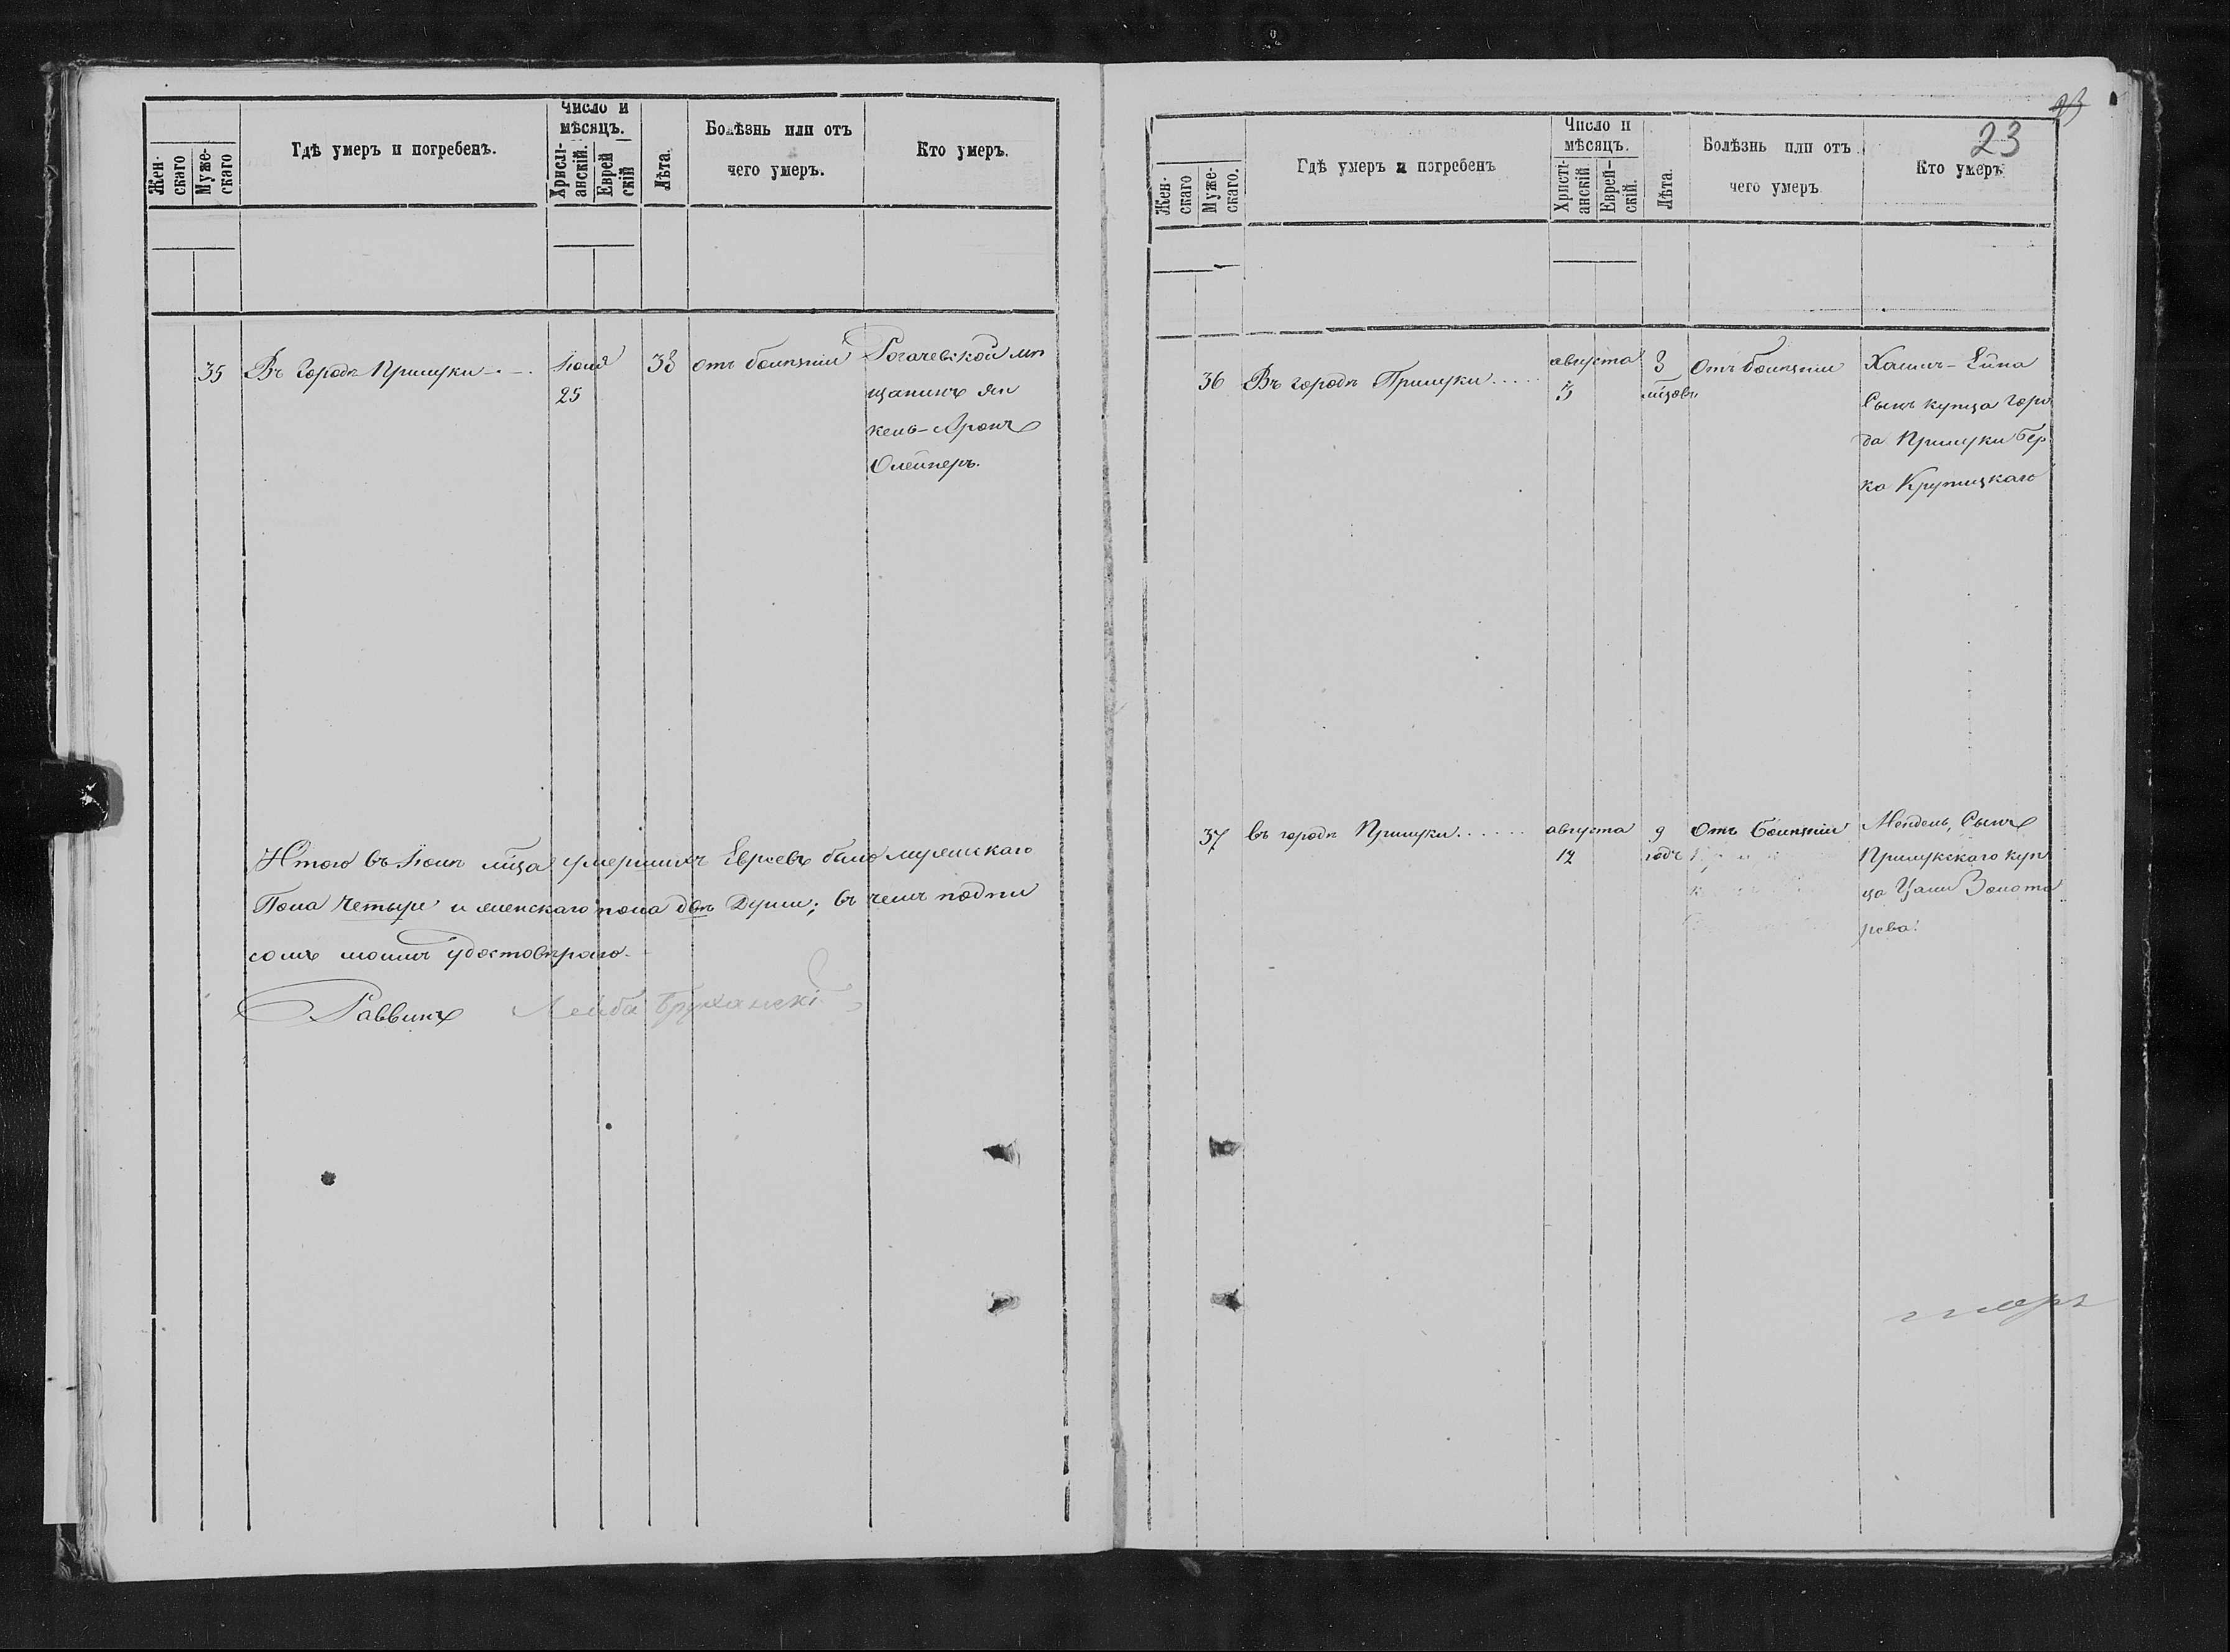 Жен-
скаго
Муже-
скаго
Гдѣ умеръ и погребенъ.
Число и
мѣсяцъ.
Христі-
анскій.
Еврей
скій
Лѣта.
Болѣзнь или отъ
чего умеръ.
Кто умеръ.
35
Въ городѣ Прилуки
Іюля
25
33
отъ болѣзніи
Рогачевской мѣ
щанинъ Ян
кель-Аронъ
Олейнеръ.
Итого въ Іюлѣ мѣсца умершихъ Евреевъ было мужескаго
Пола четыре и женскаго пола двѣ Души; въ чемъ подпи
сомъ моимъ удостовѣряю.
Раввинъ Лейба Бруханскі
23
23
Жен-
скаго
Муже-
скаго.
Гдѣ умеръ и погребенъ
Число и
мѣсяцъ.
Христі-
анскій
Еврей-
скій.
Лѣта.
Болѣзнь или отъ
чего умеръ
Кто умеръ
36
Въ городѣ Прилуки.....
августа
3
3
мѣсцовъ
Отъ болѣзніи
Хаимъ-Ейна
Сынъ купца горо
да Прилуки Бер
ка Крупицкаго
37
въ городѣ Прилуки......
августа
12
9
годъ
Отъ Болѣзніи
Мендель, Сынъ
Прилукскаго куп
ца Цали Золота
рева.